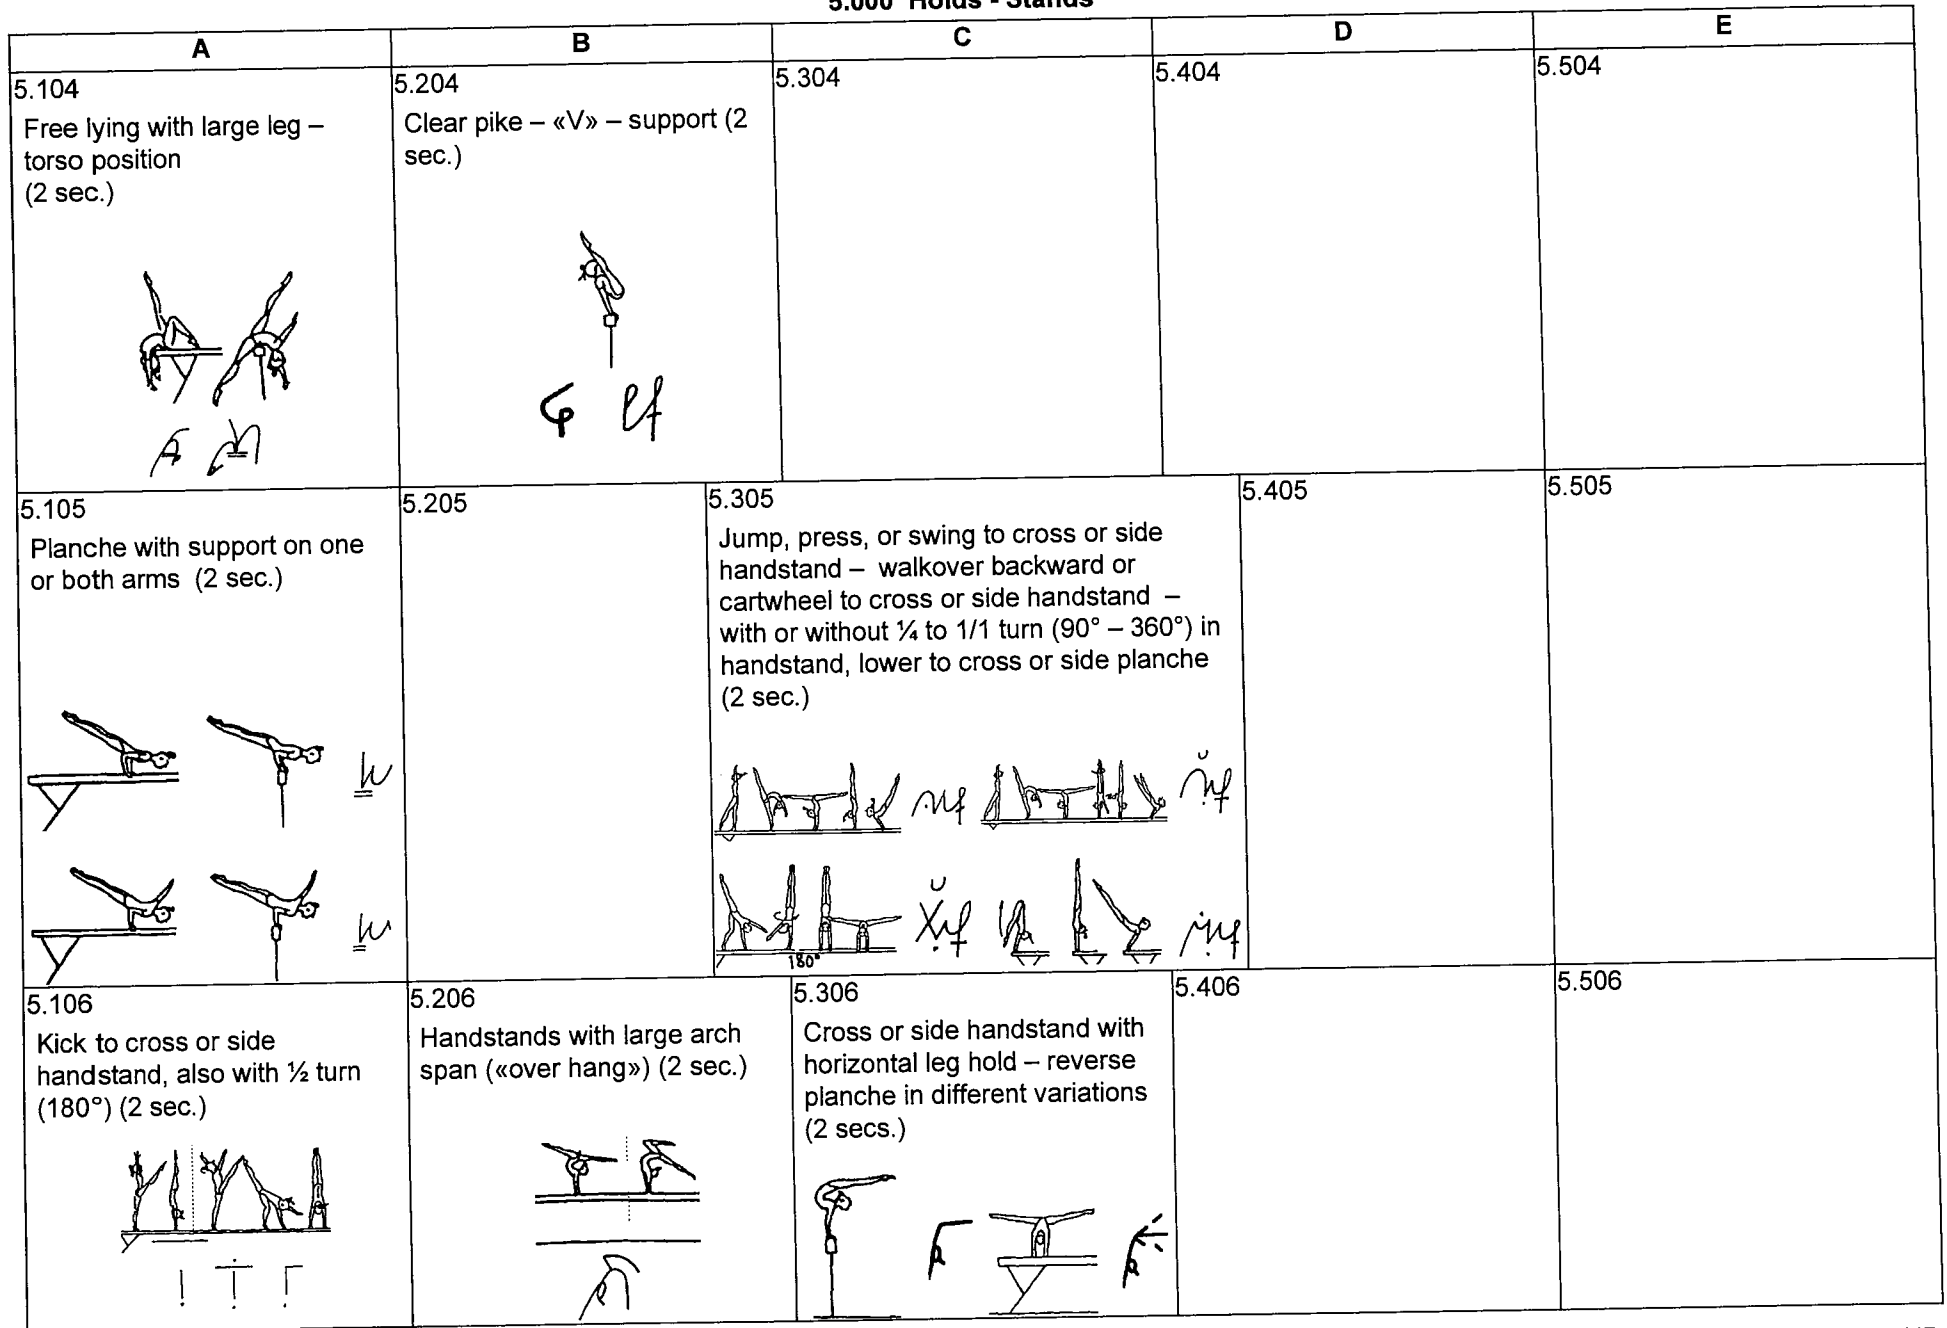 5.000 Holds - Stands
A
B
C
D
E
5.104
Free lying with large leg –
torso position
(2 sec.)
5.204
Clear pike – «V» – support (2
sec.)
5.304
5.404
5.504
5.105
Planche with support on one
or both arms (2 sec.)
5.205
5.305
Jump, press, or swing to cross or side
handstand – walkover backward or
cartwheel to cross or side handstand –
with or without ¼ to 1/1 turn (90° – 360°) in
handstand, lower to cross or side planche
(2 sec.)
180°
5.405
5.505
5.106
Kick to cross or side
handstand, also with ½ turn
(180°) (2 sec.)
5.206
Handstands with large arch
span («over hang») (2 sec.)
5.306
Cross or side handstand with
horizontal leg hold – reverse
planche in different variations
(2 secs.)
5.406
5.506